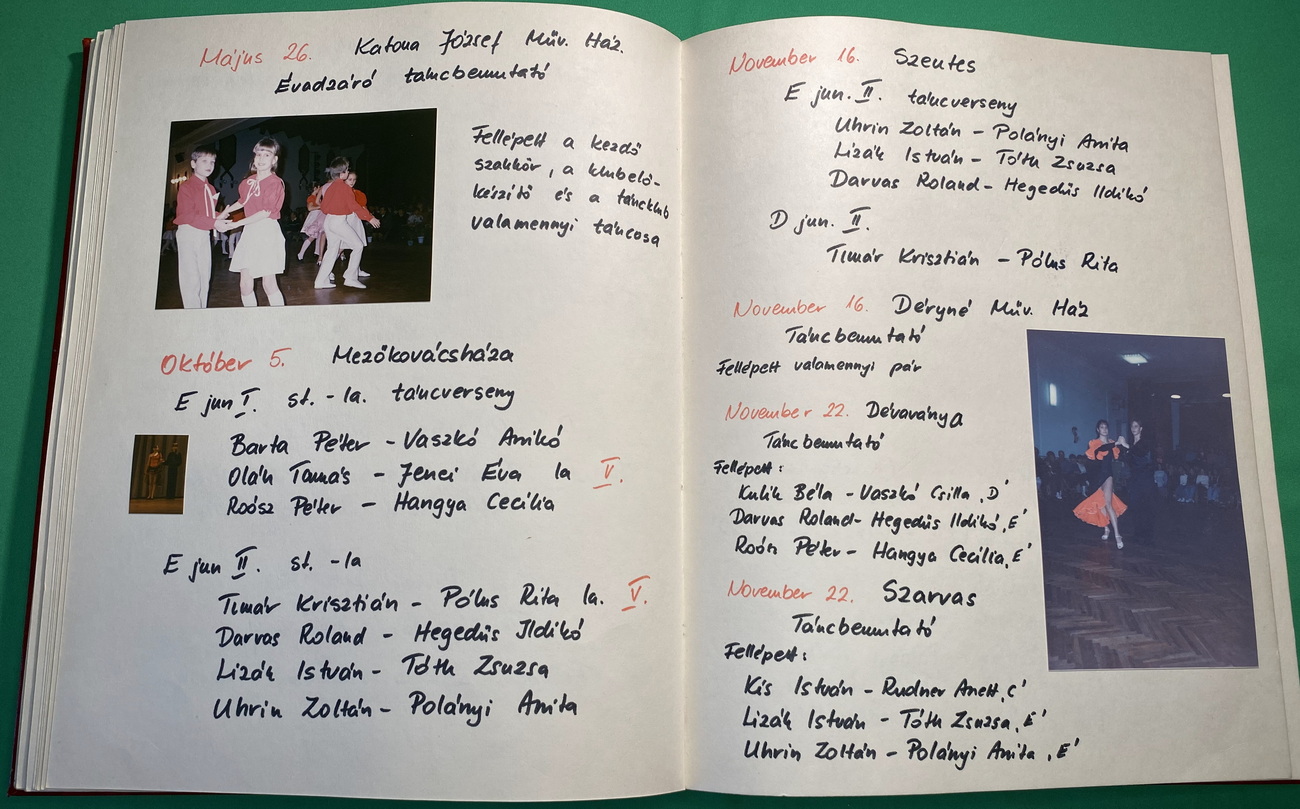 Május 26. Katona József Műv. Ház.
Évadzáró táncbemutató
Fellépett a kezdő
szakkör, a klubelő-
készítő és a táncklub
valamennyi táncosa
Október 5. Mezőkovácsháza
E jun I. st. - la. táncverseny
Barta Péter - Vaszkó Anikó
Oláh Tamás - Jenei Éva la V.
Roósz Péter - Hangya Cecília
E jun II. st. - la
Tímár Krisztián - Pólus Rita la. V.
Darvas Roland - Hegedüs Ildikó
Lizák István - Tóth Zsuzsa
Uhrin Zoltán - Polányi Anita
November 16. Szentes
E jun. II. táncverseny
Uhrin Zoltán - Polányi Anita
Lizák István - Tóth Zsuzsa
Darvas Roland - Hegedüs Ildikó
D jun. II.
Tímár Krisztián - Pólus Rita
November 16. Déryné Műv. Ház
Táncbemutató
Fellépett valamennyi pár
November 22. Dévaványa
Táncbemutató
Fellépett:
Kulik Béla - Vaszkó Csilla „D"
Darvas Roland - Hegedüs Ildikó „E"
Roósz Péter - Hangya Cecília „E"
November 22. Szarvas
Táncbemutató
Fellépett:
Kis István - Rudner Anett „C"
Lizák István - Tóth Zsuzsa „E"
Uhrin Zoltán - Polányi Anita „E"